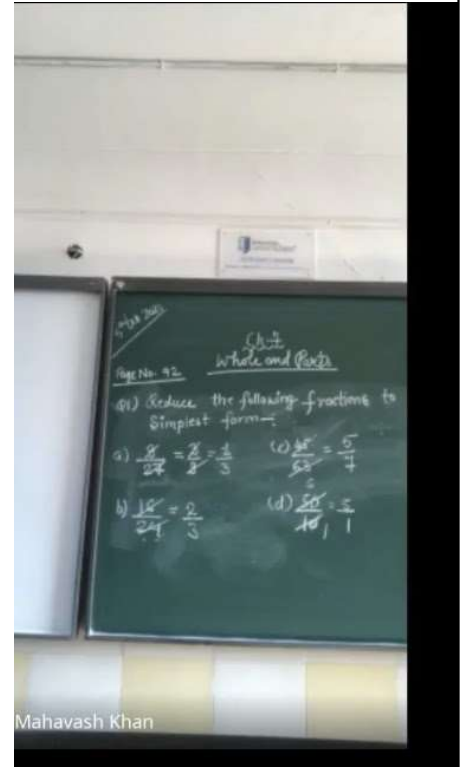 Ch-4
Whole and Parts
Page No. 92
Q1) Reduce the following fractions to
Simplest form-:
b) 16/24 = 2/3
(c) 45/63 = 5/7
(d) 50/10 = 5/1
Mahavash Khan